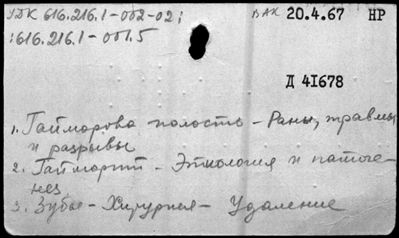 УДК 616.216.1-002-02; ВАК 20.4.67 НР
:616.216.1-001.5
Д 41678
1. Гайморова полость - Раны, травмы
и разрывы
2. Гайморит - Этиология и патоге-
нез
3. Зубы - Хирургия - Удаление